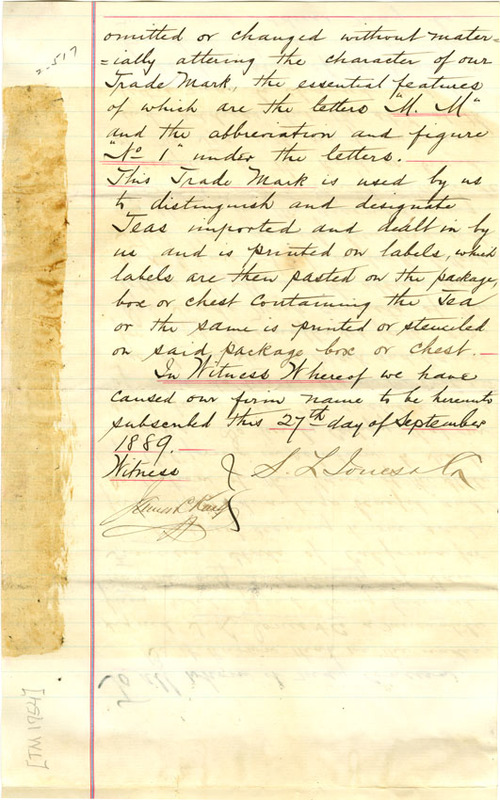 2-517
omitted or changed without mater=
=ially altering the character of our
Trade Mark, the essential features
of which are the letters "M. M"
and the abbreviation and figure
"No 1" under the letters.
This Trade Mark is used by us
to distinguish and designate
Teas imported and dealt in by
us and is printed on labels, which
labels are then pasted on the package,
box or chest containing the Tea
or the same is printed or stenciled
on said package box or chest.
In Witness Whereof we have
caused our firm name to be hereunto
subscribed this 27th day of September
1889.
Witness } S. L. Jones & Co
James
To all whom it may concern
[TM 1764]